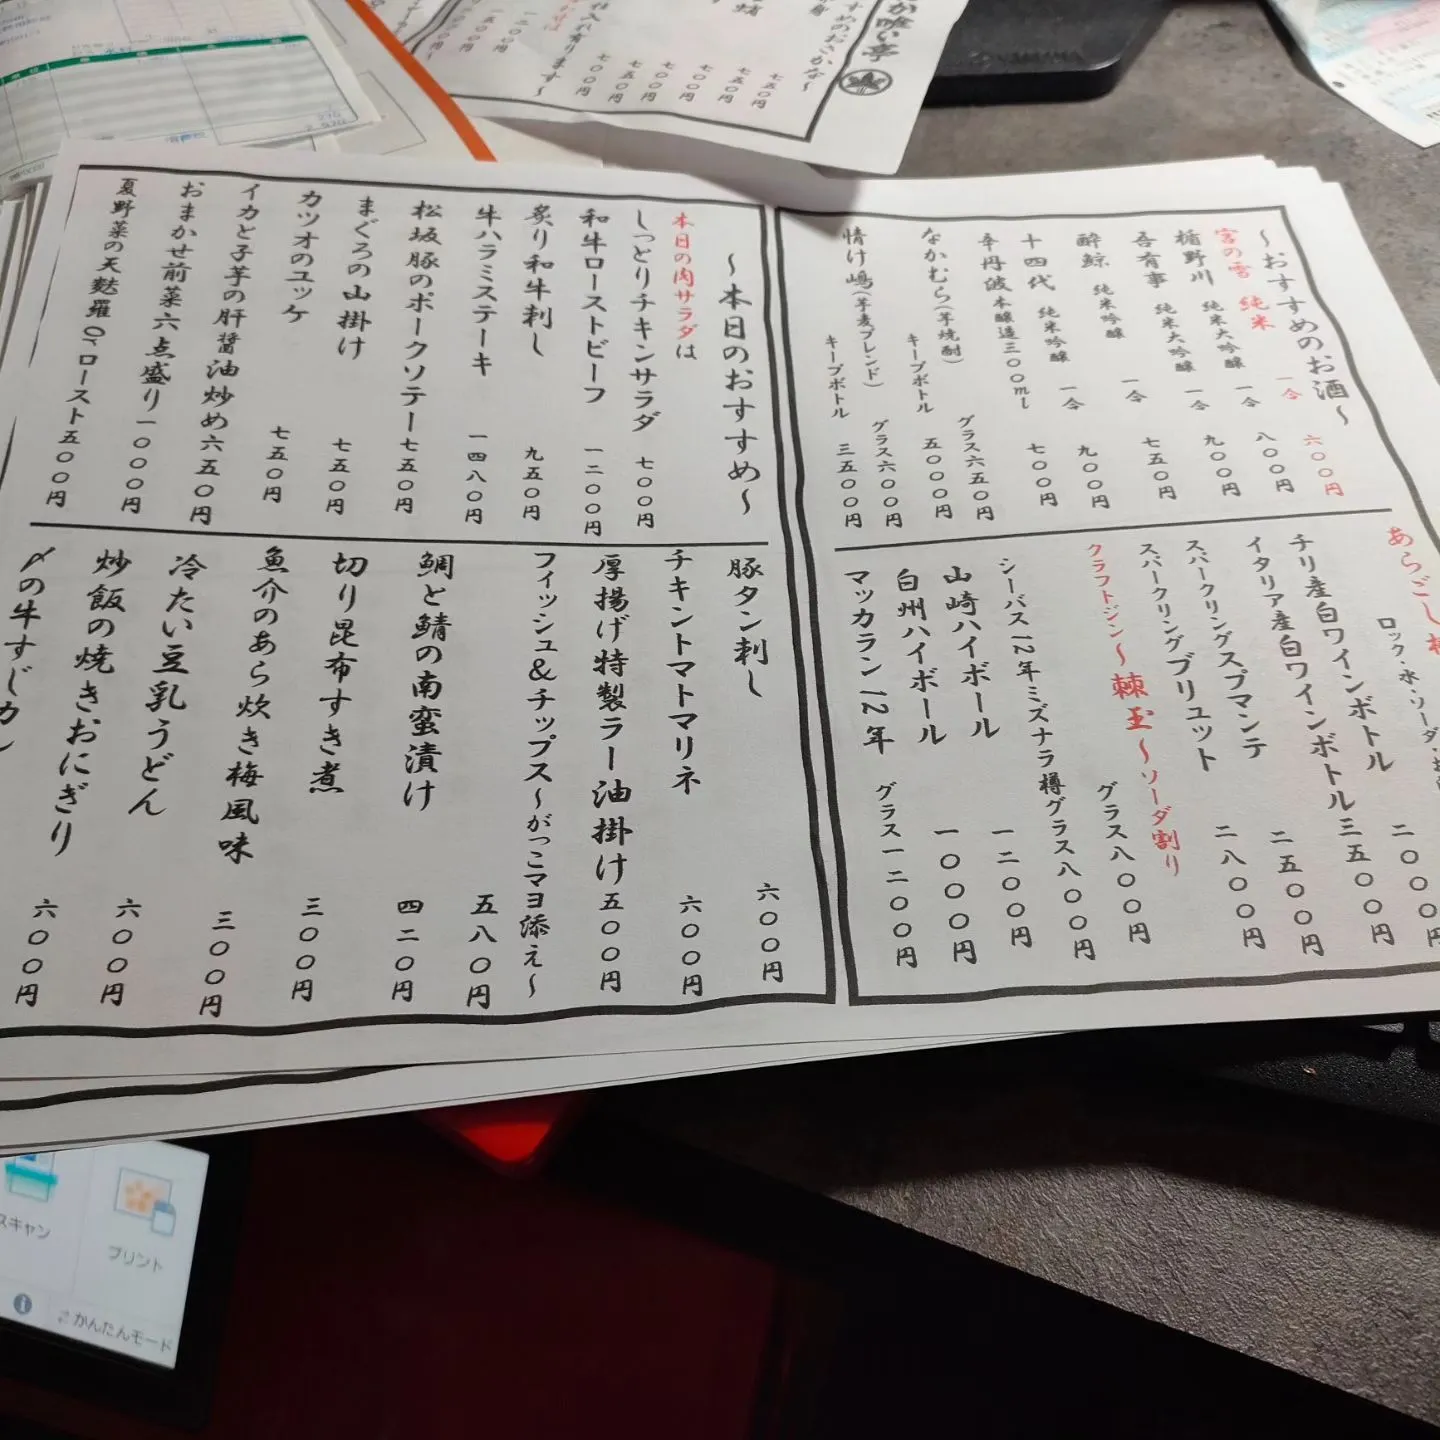 が喰い亭
すめのおさかな〜
七五〇円
七五〇円
七〇〇円
七五〇円
七五〇円
七〇〇円
仕入れ有ります〜
一二〇〇円
一五〇〇円
〜おすすめのお酒〜
宮の雪 純米 一合 六〇〇円
楯野川 純米大吟醸 一合 八〇〇円
吾有事 純米大吟醸 一合 九〇〇円
酔鯨 純米吟醸 一合 七五〇円
十四代 純米吟醸 一合 九〇〇円
辛丹波 本醸造三〇〇ml 七〇〇円
なかむら(芋焼酎) グラス六五〇円
キープボトル 五〇〇〇円
情け嶋(芋麦ブレンド) グラス六〇〇円
キープボトル 三五〇〇円
あらごし
ロック・水・ソーダ・
チリ産白ワインボトル 二〇〇〇円
イタリア産白ワインボトル 三五〇〇円
スパークリングスプマンテ 二五〇〇円
スパークリングブリュット 二八〇〇円
クラフトジン〜棘玉〜ソーダ割り
グラス八〇〇円
シーバス12年ミズナラ樽グラス八〇〇円
山崎ハイボール 一二〇〇円
白州ハイボール 一〇〇〇円
マッカラン12年 グラス一二〇〇円
〜本日のおすすめ〜
本日の肉サラダは
しっとりチキンサラダ 七〇〇円
和牛ローストビーフ 一二〇〇円
炙り和牛刺し 九五〇円
牛ハラミステーキ 一四八〇円
松坂豚のポークソテー 七五〇円
まぐろの山掛け 七五〇円
カツオのユッケ 七五〇円
イカと子芋の肝醤油炒め 六五〇円
おまかせ前菜六点盛り 一〇〇〇円
夏野菜の天麩羅orロースト 五〇〇円
豚タン刺し 六〇〇円
チキントマトマリネ 六〇〇円
厚揚げ特製ラー油掛け 五〇〇円
フィッシュ&チップス〜がっこマヨ添え〜
五八〇円
鯛と鯖の南蛮漬け 四二〇円
切り昆布すき煮 三〇〇円
魚介のあら炊き梅風味 三〇〇円
冷たい豆乳うどん 六〇〇円
炒飯の焼きおにぎり 六〇〇円
〆の牛すじカレ
スキャン
プリント
かんたんモード